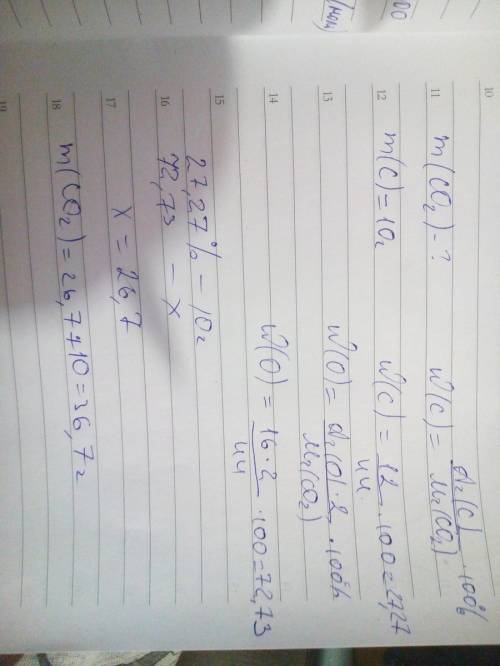 00
(мол)
10
11 m(CO₂)-? W(C)= Ar(C) / Mr(CO₂) · 100%
12 m(C)=10г W(C)= 12 / 44 · 100=27,27
13 W(O)= Ar(O)·2 / Mr(CO₂) · 100%
14 W(O)= 16·2 / 44 · 100=72,73
15 27,27% - 10г
16 72,73 - X
17 X = 26,7
18 m(CO₂)=26,7+10=36,7г
19